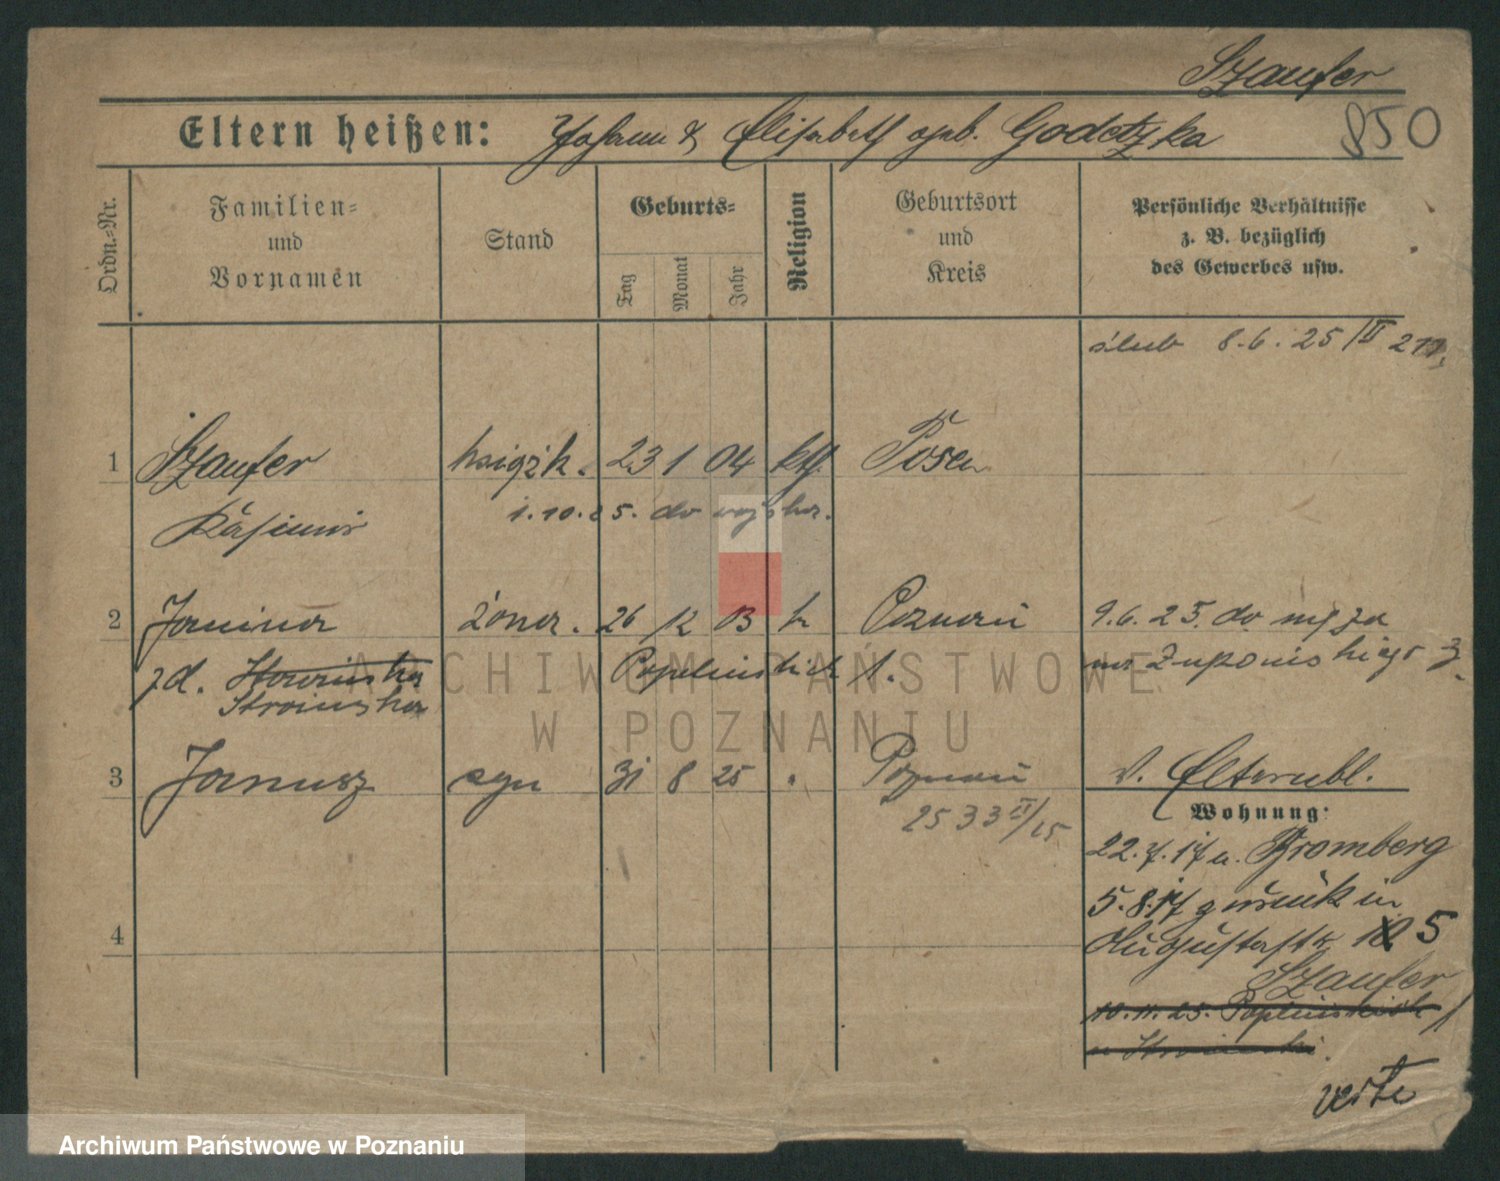 Szaufer
850
Eltern heißen: Johann & Elisabeth geb. Godetzka
Ordn.-Nr.
Familien-
und
Vornamen
Stand
Geburts-
Tag
Monat
Jahr
Religion
Geburtsort
und
Kreis
Persönliche Verhältnisse
z. B. bezüglich
des Gewerbes usw.
ślub 8.6.25/II
1 Szaufer książk. 23 1 04 kth. Posen
Kasimir 1.10.25. do wojska.
2 Janina żona. 26 12 03 k Poznań 9.6.25. do męża
zd. Stroinska Poplinskich 1. na Żupańskiego 3.
Stroinska
3 Janusz syn 31 8 25 " Poznań v. Elternbl.
2533 II/25
Wohnung:
22.7.17 n. Bromberg
5.8.17 zurück in
4 Augustastr. 5
Szaufer
10.11.25. Poplinskich 1
u Stroinski.
verte
ARCHIWUM PAŃSTWOWE
W POZNANIU
Archiwum Państwowe w Poznaniu